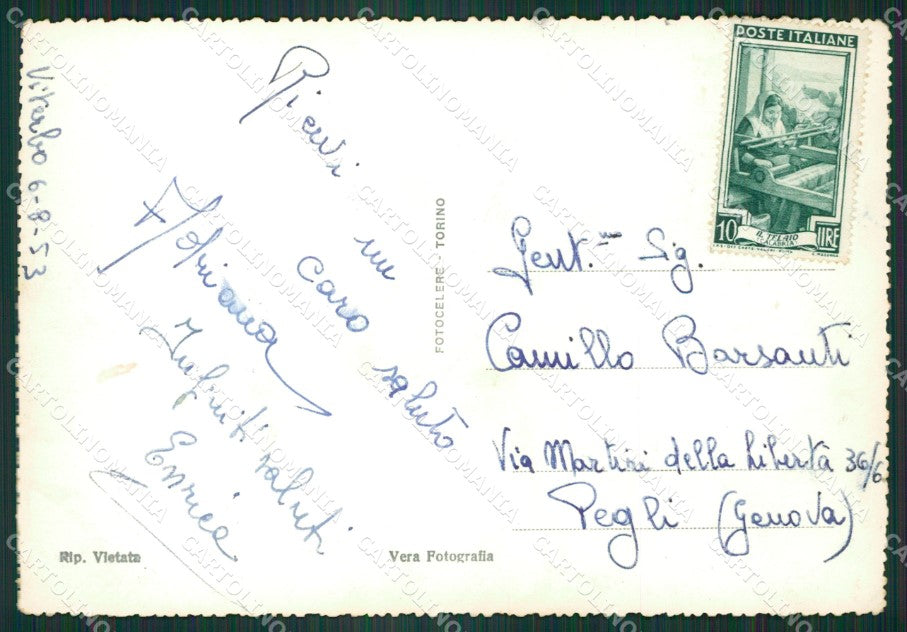 Viterbo 6-8-53
Ricevi
un
caro
saluto
Adriana
Infiniti saluti
Enrica
FOTOCELERE - TORINO
POSTE ITALIANE
10 LIRE
IL TELAIO
(CALABRIA)
Gent.mo Sig.
Camillo Barsanti
Via Martiri della Libertà 36/6
Pegli (Genova)
Rip. Vietata
Vera Fotografia
CARTOLINOMANIA